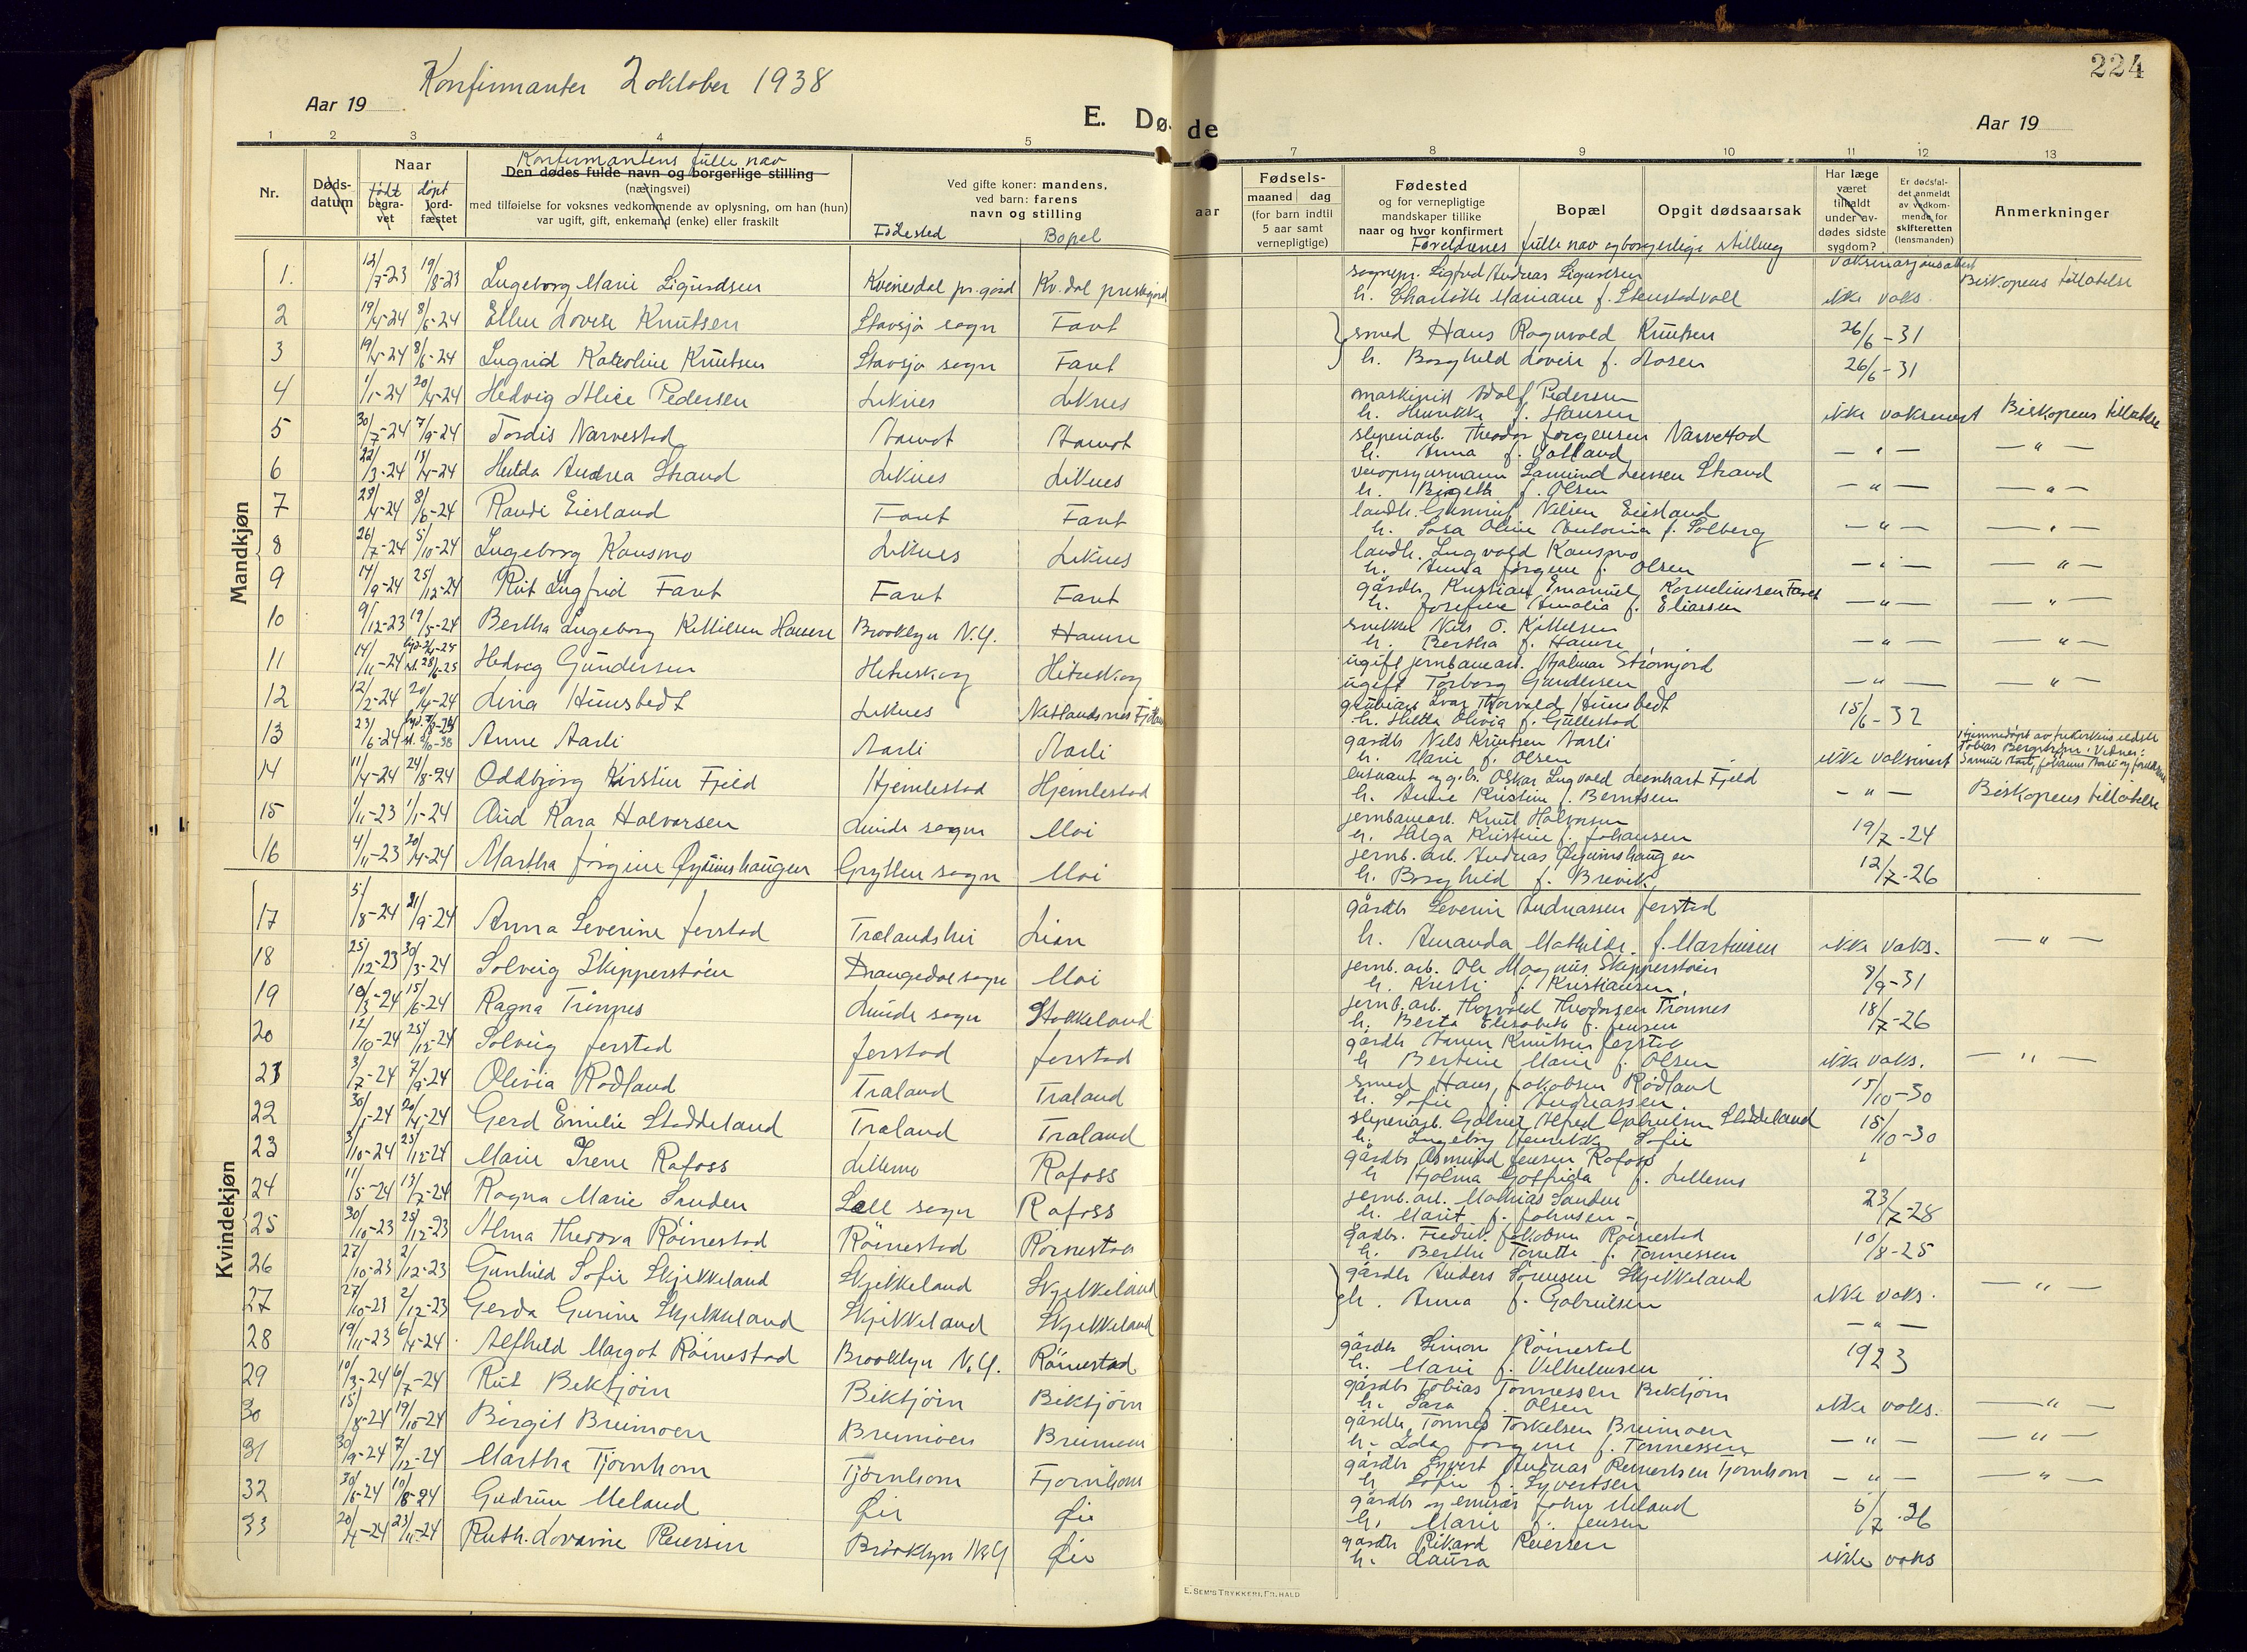 Konfirmanter 2 oktober 1938
Aar 19
E. Dø-
1 2 3 4 5
Nr.
Døds-
datum
Naar
født døpt
begra- jord-
vet fæstet
Konfirmantens fulle nav
Den dødes fulde navn og borgerlige stilling
(næringsvei)
med tilføielse for voksnes vedkommende av oplysning, om han (hun)
var ugift, gift, enkemand (enke) eller fraskilt
Ved gifte koner: mandens,
ved barn: farens
navn og stilling
Fødested Bopel
Mandkjøn
1. 12/7-23 19/8-23 Ingeborg Marie Sigurdsen Kvinesdal pr.gård Kv.dal prestegård
2 19/4-24 8/6-24 Ellen Lovise Knutsen Stavsjø sogn Faret
3 19/4-24 8/6-24 Ingrid Karoline Knutsen Stavsjø sogn Faret
4 1/1-24 20/4-24 Hedvig Alice Pedersen Liknes Liknes
5 30/7-24 7/9-24 Tordis Narvestad Aamot Aamot
6 22/3-24 13/4-24 Hulda Andrea Strand Liknes Liknes
7 28/4-24 8/6-24 Randi Eiesland Faret Faret
8 26/7-24 5/10-24 Ingeborg Kausmo Liknes Liknes
9 14/9-24 25/12-24 Rut Ingfrid Faret Faret Faret
10 9/12-23 19/5-24 Bertha Ingeborg Kittilsen Hamre Brooklyn N.Y. Hamre
11 14/11-24 Hedvig Gundersen Heiuskog Heiuskog
12 12/2-24 20/4-24 Lina Hunsbedt Liknes Netlandsnes
13 23/6-24 Anne Aarli Aarli Aarli
14 11/4-24 24/8-24 Oddbjørg Kirstin Fjeld Hjemlestad Hjemlestad
15 1/11-23 1/1-24 Aud Kara Halvorsen Lunde sogn Moi
16 4/11-23 20/4-24 Martha Jørgine Øygunshaugen Grytten sogn Moi
Kvindekjøn
17 5/8-24 21/9-24 Anna Severine Jerstad Trælandshei Lian
18 25/12-23 30/3-24 Solveig Skipperstøen Drangedal sogn Moi
19 10/3-24 15/6-24 Ragna Trønnes Lunde sogn Stokkeland
20 12/10-24 25/12-24 Solveig Jerstad Jerstad Jerstad
21 3/7-24 7/9-24 Olivia Rødland Træland Træland
22 30/1-24 20/4-24 Gerd Emilie Stoddeland Træland Træland
23 3/10-24 25/12-24 Marie Irene Rafoss Lillemo Rafoss
24 11/5-24 13/7-24 Ragna Marie Sanden Sell sogn Rafoss
25 30/10-23 25/12-23 Alma Theodora Röinestad Röinestad Röinestad
26 27/10-23 2/12-23 Gunhild Sofie Skjekkeland Skjekkeland Skjekkeland
27 27/10-23 2/12-23 Gerda Gurine Skjekkeland Skjekkeland Skjekkeland
28 19/11-23 6/4-24 Alfhild Margot Röinestad Brooklyn N.Y. Röinestad
29 10/3-24 6/7-24 Rut Bektjörn Bektjörn Bektjörn
30 15/8-24 19/10-24 Birgit Breimoen Breimoen Breimoen
31 30/9-24 7/12-24 Martha Tjörnhom Tjörnhom Tjörnhom
32 30/6-24 10/8-24 Gudrun Meland Øie Øie
33 20/4-24 23/11-24 Ruth Lovarine Reiersen Brooklyn N.Y Øie
224
de
Aar 19
7 8 9 10 11 12 13
aar
Fødsels-
maaned dag
(for barn indtil
5 aar samt
vernepligtige)
Fødested
og for vernepligtige
mandskaper tillike
naar og hvor konfirmert
Bopæl
Opgit dødsaarsak
Foreldrenes fulle nav og borgerlige stilling
Har læge
været
tilkaldt
under av-
dødes sidste
sygdom?
Er dødsfal-
det anmeldt
av vedkom-
mende for
skifteretten
(lensmanden)
Anmerkninger
sognepr. Sigfred Andreas Sigurdsen
h. Charlotte Mariane f. Stenstadvoll ikke vaks. Biskopens tillatelse
smed Hans Ragnvald Knutsen 26/6-31
h. Borghild Lovise f. Aasen 26/6-31
maskinist Adolf Pedersen
h. Henrikke f. Hansen ikke vaksinert Biskopens tillatelse
sliperiarb. Theodor Jørgensen Narvestad
h. Anna f. Valland — " — — " —
veiopsynsmann Samund Lenssen Strand
h. Birgette f. Olsen — " — — " —
landh. Gunnuf Nilsen Eiesland
h. Sara Oline Antonia f. Solberg — " — — " —
landh. Ingvald Kausmo
h. Anna Jørgine f. Olsen — " — — " —
gårdbr. Kristian Emanuel Korneliussen Faret
h. Josefine Amalia f. Eliassen — " — — " —
snekker Nils O. Kittelsen
h. Bertha f. Hamre — " — — " —
ugift jernbanearb. Hjalmar Strømjord
ugift Torborg Gundersen — " — — " —
grubearb. Ivar Thorvald Hunsbedt
h. Hilda Olivia f. Gullestad 15/6-32
gårdbr Nils Knutsen Aarli
h. Marie f. Olsen ikke vaksinert
Hjemmedøpt av frikirkens eldste
Tobias Bergstrøm. Vidner:
løitnant og g.br. Oskar Ingvald Leonhart Fjeld
h. Anne Kristine f. Berntsen — " — Biskopens tillatelse
jernbanearb. Knut Halvorsen
h. Helga Kristine f. Johansen 19/7-24
jernb. arb. Andreas Øygunshaugen
h. Borghild f. Brevik 12/7-26
gårdbr Severin Andreassen Jerstad
h. Amanda Mathilde f. Martinsen ikke vaks. — " —
jernb. arb. Ole Magnus Skipperstøen
h. Kristi f. Kristiansen 8/9-31
jernb. arb. Thorvald Theodorsen Trønnes
h. Berta Elisabeth f. Jensen 18/7-26
gårdbr Aanen Knutsen Jerstad
h Bertine Marie f. Olsen ikke vaks. — " —
smed Hans Jakobsen Rødland
h. Sofie f. Andreassen 15/10-30
sliperiarb. Gabriel Alfred Gabrielsen Stoddeland
h. Ingeborg Henrikke Sofie 15/10-30
gårdbr. Asmund Jensen Rafoss
h Hjalma Gotfrida f. Lillemo
jernb. arb. Mathias Sanden
h. Marit f. Johnsen 23/7-28
gårdbr. Fredrik Jakobsen Röinestad
h. Berthe Tonette f. Tønnessen 10/8-25
gårdbr Anders Sørensen Skjekkeland
h. Anna f. Gabrielsen ikke vaks. — " —
— " —
gårdbr Simon Röinestad
h. Marie f. Vilhelmsen 1923
gårdbr Tobias Tønnessen Bektjörn
h. Sara f. Olsen ikke vaks. — " —
gårdbr. Tønnes Torkelsen Breimoen
h. Ida Jorgine f. Tønnessen — " — — " —
gårdbr Syvert Andreas Reinertsen Tjörnhom
h Sofie f. Syvertsen — " — — " —
gårdbr og emisær John Meland
h. Marie f. Jensen 5/7-26
gårdbr Rikard Reiersen
h. Laura ikke vaks
E. SEM'S TRYKKERI, FR. HALD